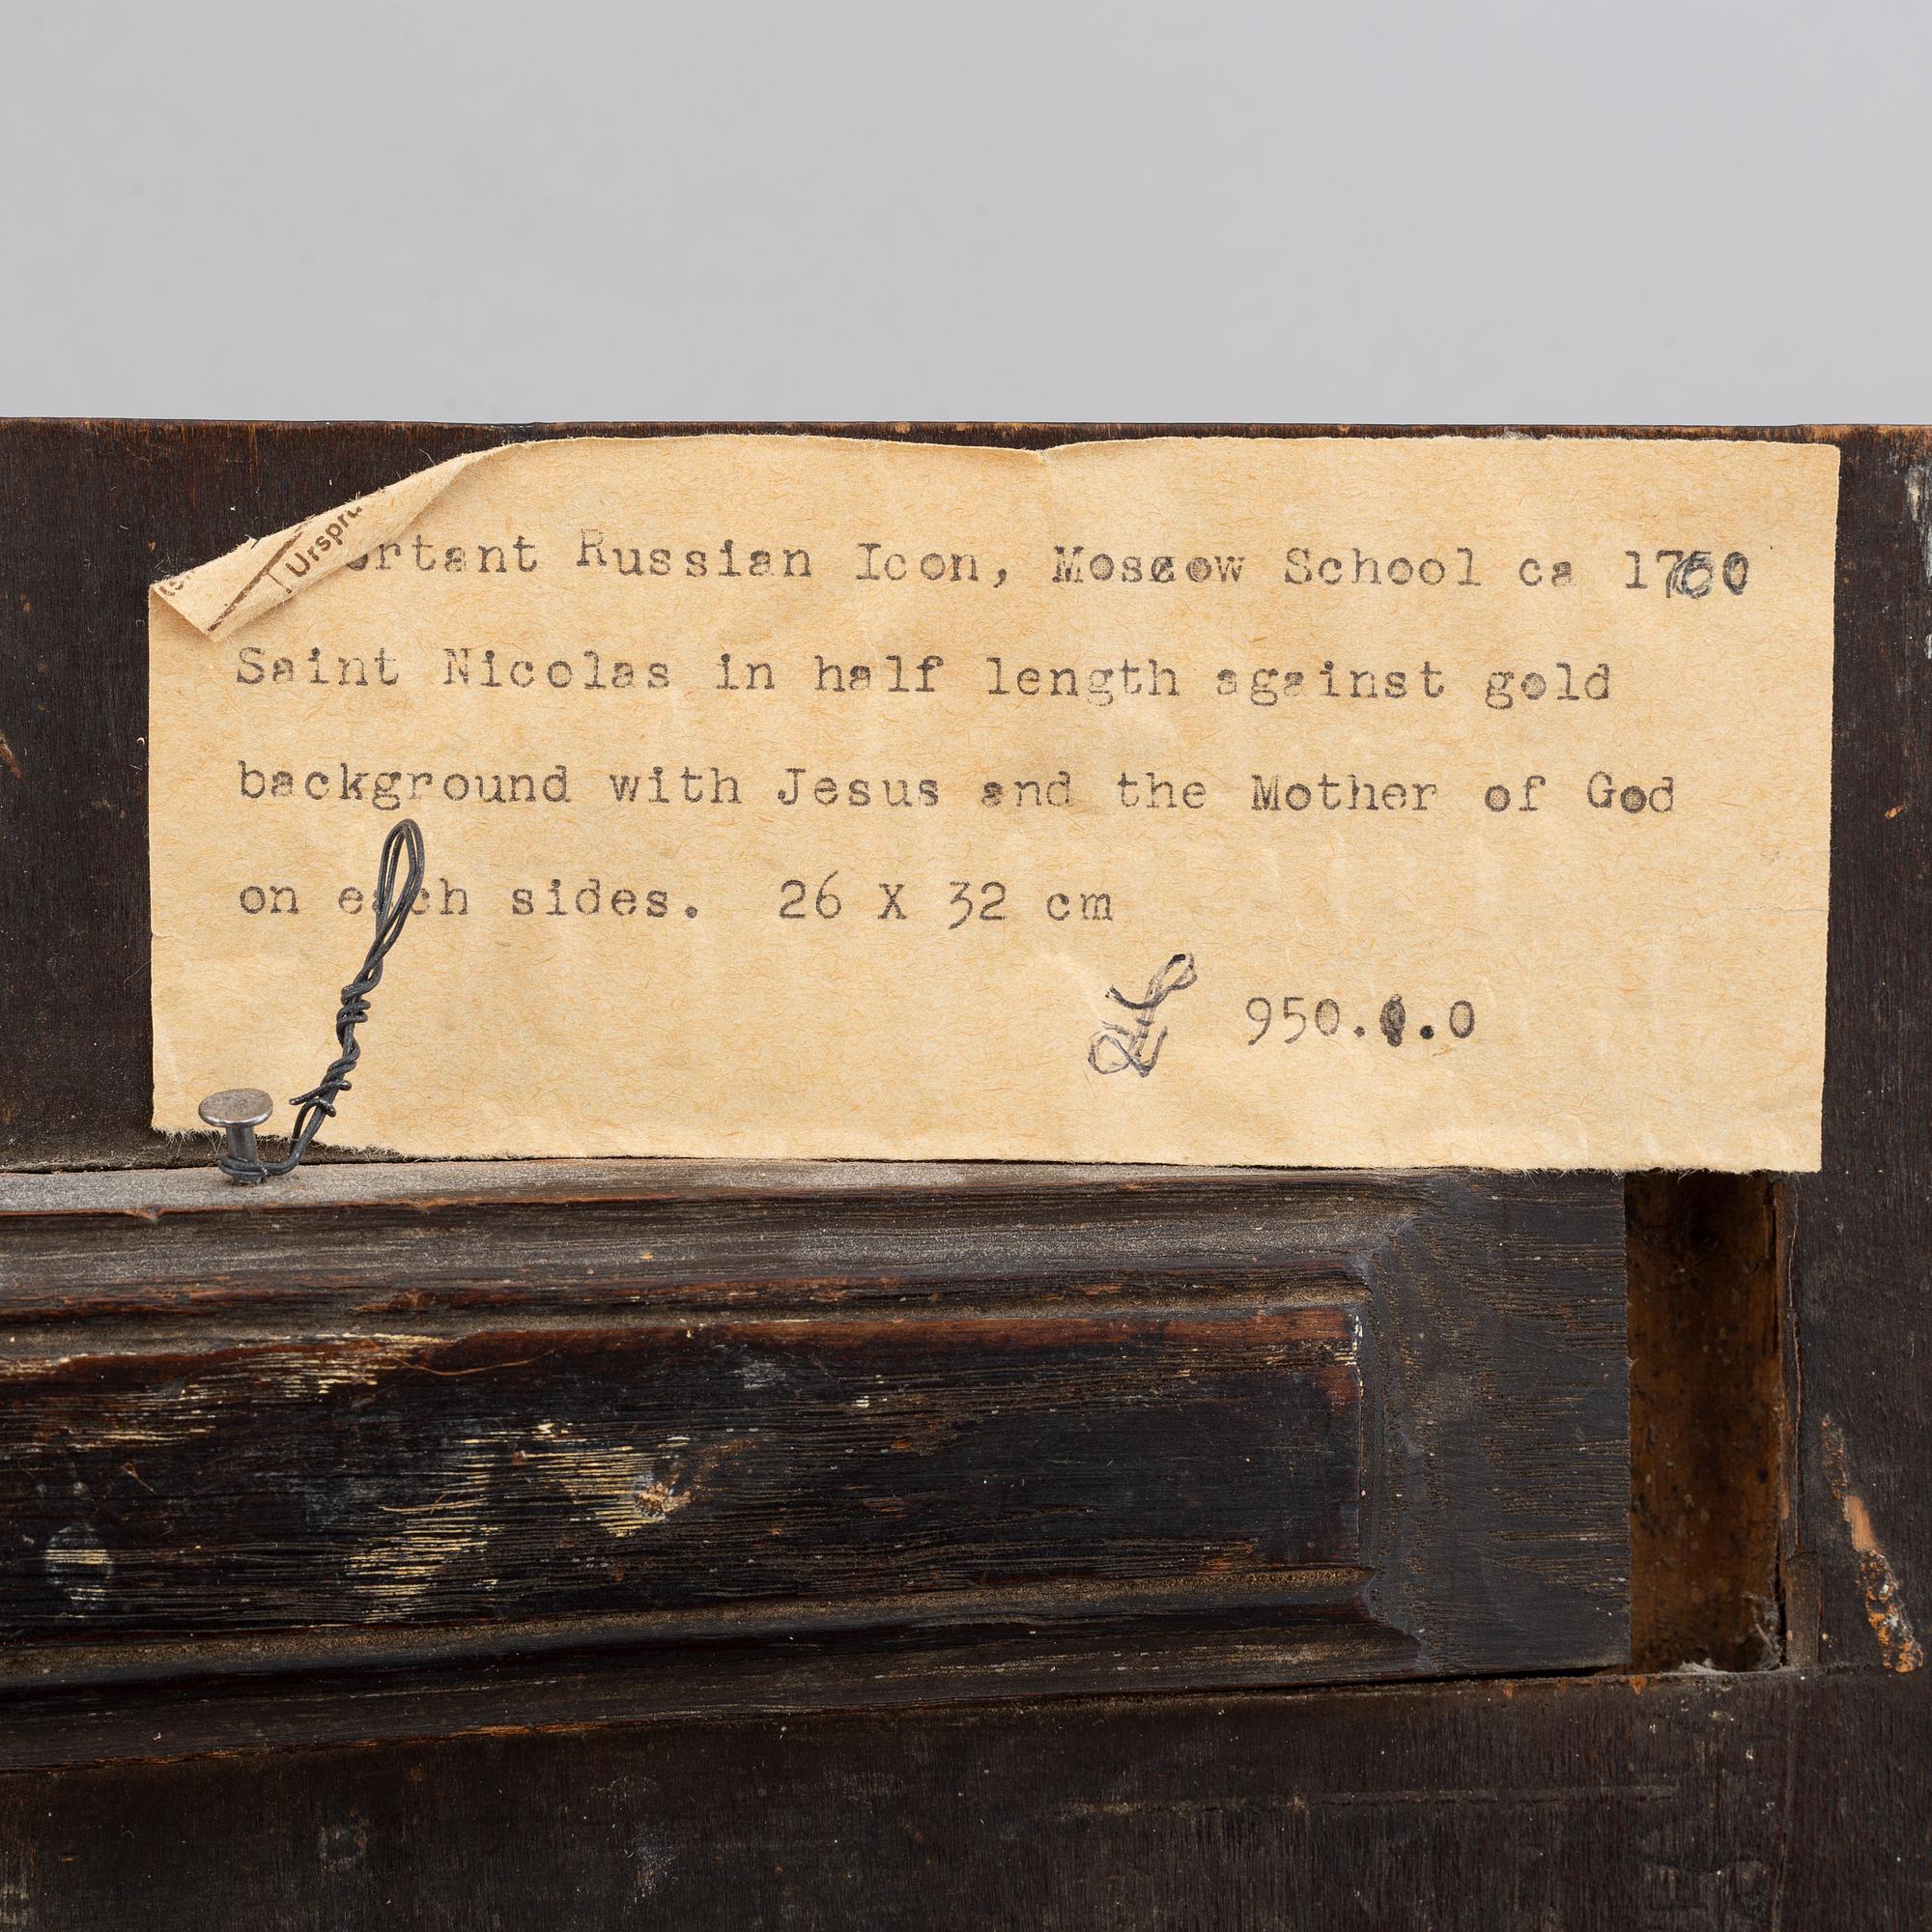 Russian Icon, Moscow School ca
Saint Nicolas in half length against gold
background with Jesus and the Mother of God
on each sides. 26 X 32 cm